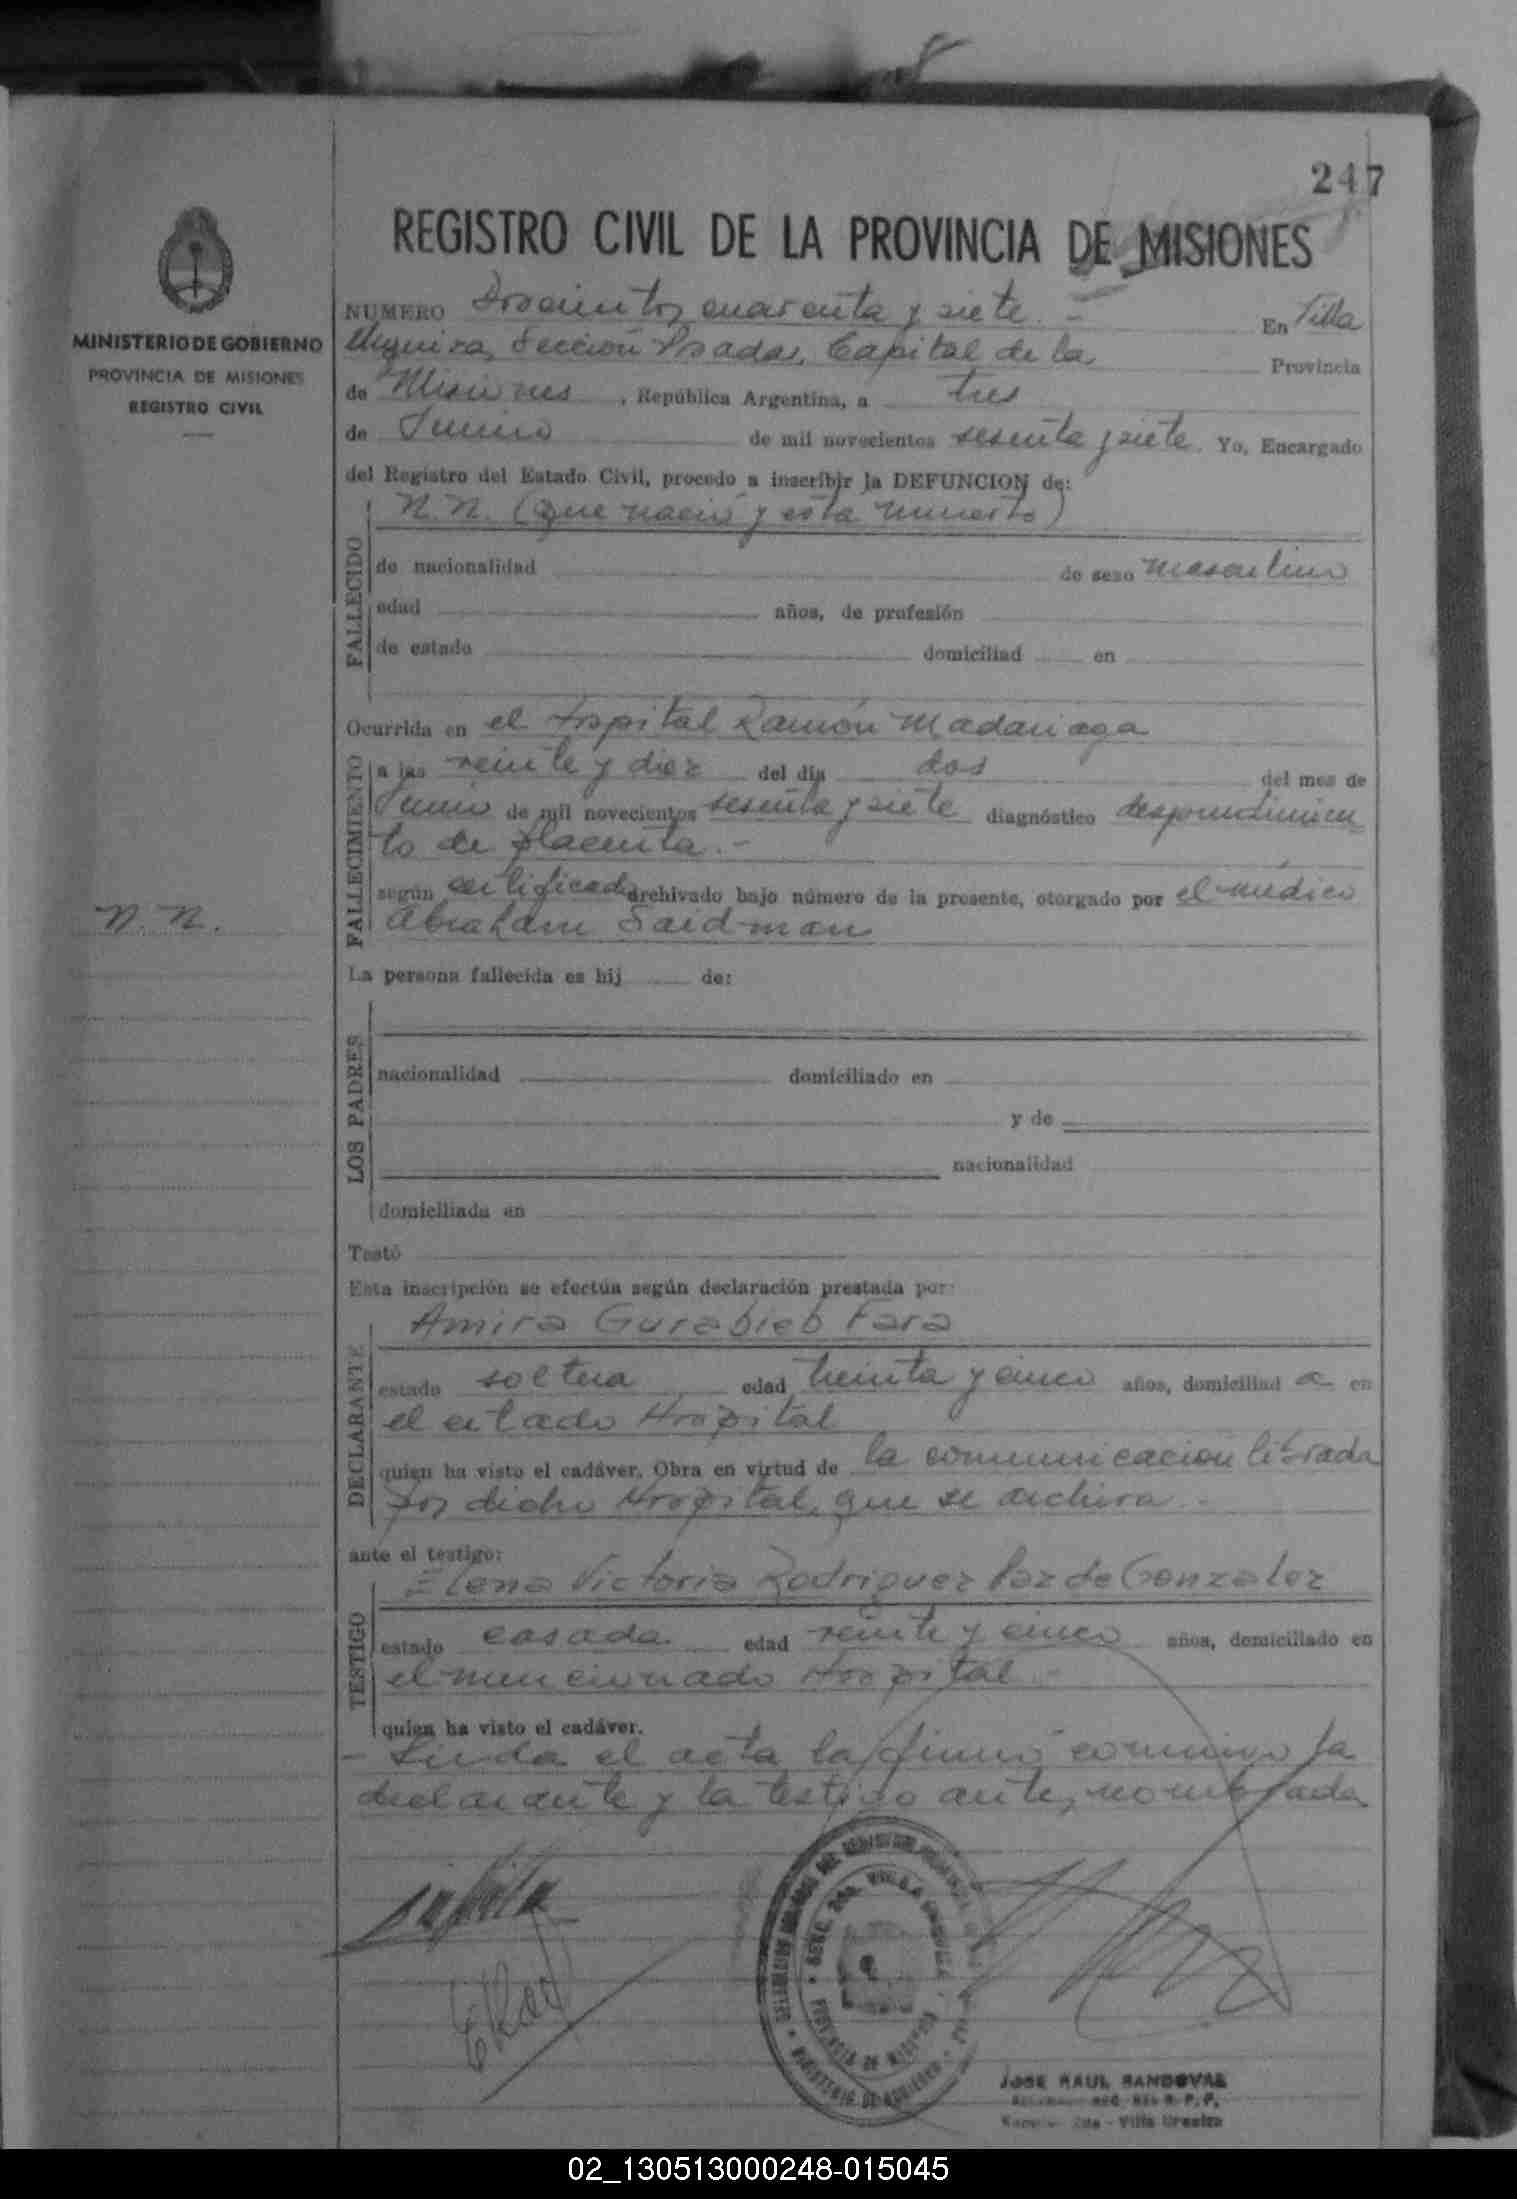 247
REGISTRO CIVIL DE LA PROVINCIA DE MISIONES
MINISTERIO DE GOBIERNO
PROVINCIA DE MISIONES
REGISTRO CIVIL
NUMERO Doscientos cuarenta y siete.- En Villa
Urquiza, Sección Posadas, Capital de la Provincia
de Misiones, República Argentina, a tres
de Junio de mil novecientos sesenta y siete. Yo, Encargado
del Registro del Estado Civil, procedo a inscribir la DEFUNCION de:
N.N. (que nació y está muerto)
FALLECIDO
de nacionalidad de sexo masculino
edad años, de profesión
de estado domiciliad en
Ocurrida en el Hospital Ramón Madariaga
FALLECIMIENTO
a las veinte y diez del día dos del mes de
Junio de mil novecientos sesenta y siete diagnóstico desprendimien
to de placenta.-
según certificado archivado bajo número de la presente, otorgado por el médico
Abraham Saidman
N.N.
La persona fallecida es hij de:
LOS PADRES
nacionalidad domiciliado en
y de
nacionalidad
domiciliada en
Testó
Esta inscripción se efectúa según declaración prestada por:
Amira Gurabieb Fara
DECLARANTE
estado soltera edad treinta y cinco años, domiciliad a en
el citado Hospital
quien ha visto el cadáver. Obra en virtud de la comunicación librada
por dicho Hospital, que se archiva.-
ante el testigo:
Elena Victoria Rodriguez Paz de Gonzalez
TESTIGO
estado casada edad veinte y cinco años, domiciliado en
el mencionado Hospital.-
quien ha visto el cadáver.
- Leida el acta la firmó conmigo la
declarante y la testigo antes nombrada
SECC. 2da. VILLA URQUIZA
PROVINCIA DE MISIONES
MINISTERIO DE GOBIERNO
JOSE RAUL SANDOVAL
2da - Villa Urquiza
02_130513000248-015045